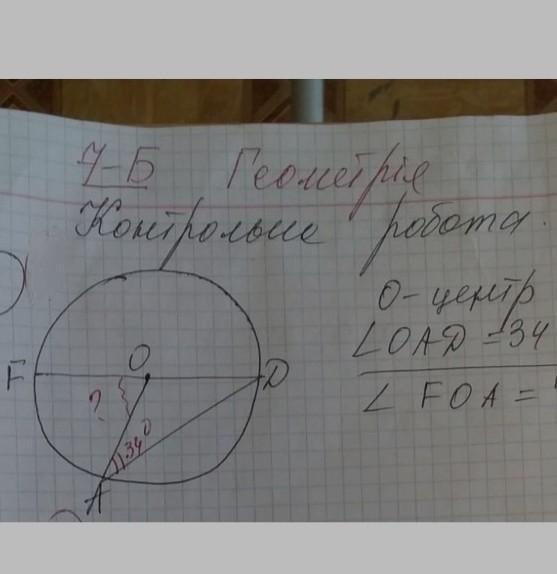 7-Б Геометрія
Контрольна робота.
О - центр
∠OAD = 34
∠FOA =
F
O
D
?
34°
A